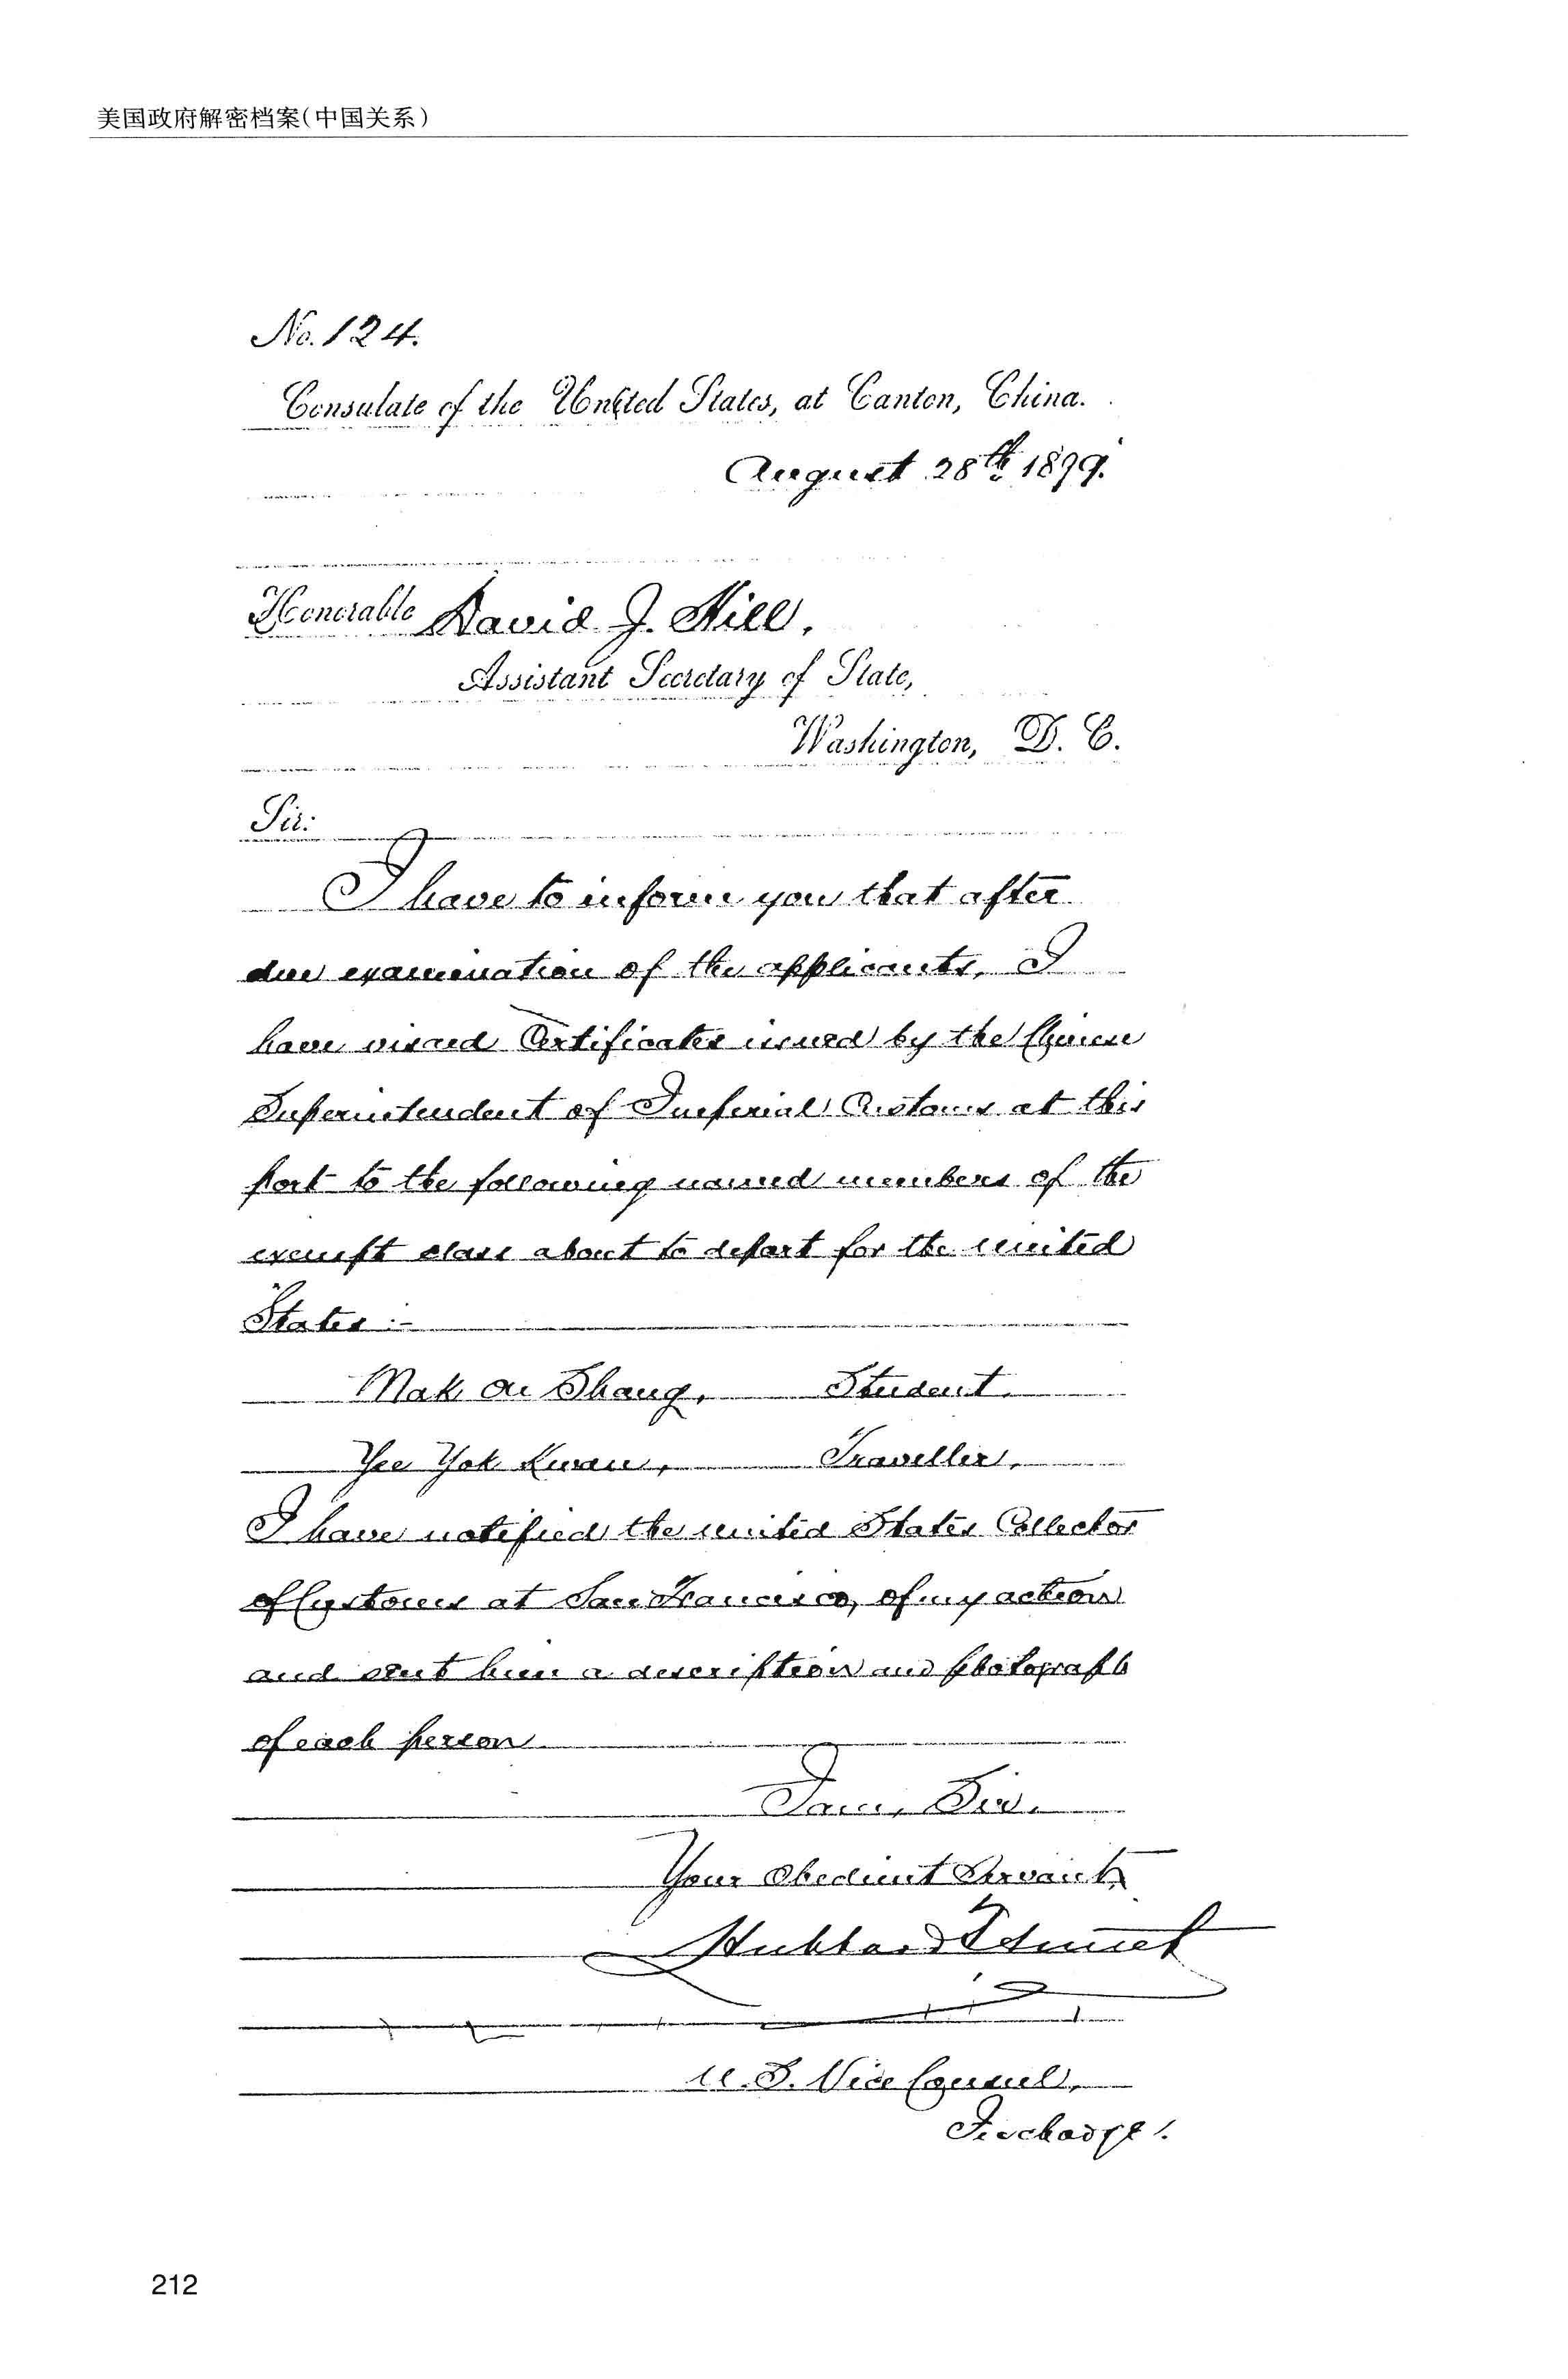 美国政府解密档案(中国关系)
No. 124.
Consulate of the United States, at Canton, China.
August 28th 1899.
Honorable David J. Hill,
Assistant Secretary of State,
Washington, D. C.
Sir:
I have to inform you that after
due examination of the applicants, I
have visaed Certificates issued by the Chinese
Superintendent of Imperial Customs at this
port to the following named members of the
exempt class about to depart for the United
States:-
Mak On Shang, Student.
Yee Yok Kwan, Traveller.
I have notified the United States Collector
of Customs at San Francisco, of my action
and sent him a description and photograph
of each person.
I am, Sir,
Your Obedient Servant,
Hubbard T. Smith
U. S. Vice Consul,
In charge.
212